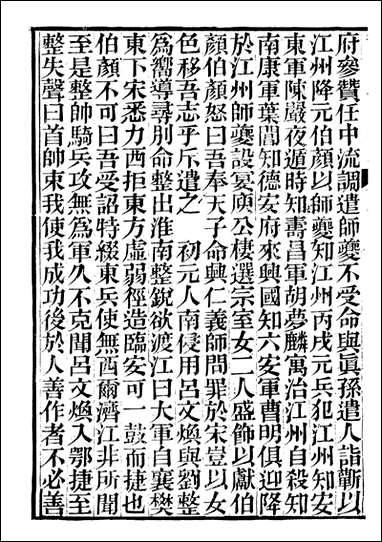 府參贊任中流調遣師夔不受命與眞孫遣人詣蘄以
江州降元伯顏以師夔知江州丙戌元兵犯江州知安
東軍陳巖夜遁時知壽昌軍胡夢麟寓治江州自殺知
南康軍葉閶知德安府來興國知六安軍曹明俱迎降
於江州師夔設宴庾公樓選宗室女二人盛飾以獻伯
顏伯顏怒曰吾奉天子命興仁義師問罪於宋豈以女
色移吾志乎斥遣之　初元人南侵用呂文煥與劉整
爲嚮導尋別命整出淮南整銳欲渡江曰大軍自襄樊
東下宋悉力西拒東方虛弱徑造臨安可一鼓而捷也
伯顏不可曰吾受詔特綴東兵使無西爾濟江非所聞
至是整帥騎兵攻無爲軍久不克聞呂文煥入鄂捷至
整失聲曰首帥束我使我成功後於人善作者不必善